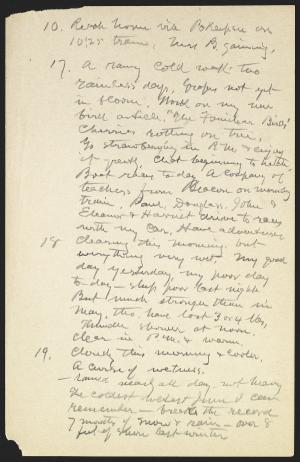 10. Reach home via Pokeepsie on
10:25 train, Mrs B. gaining,
17. A rainy cold week: two
rainless days, Grapes not yet
in bloom. Work on my new
bird article, "The Familiar Birds"
Cherries rotting on tree,
Go strawberrying in P.M. & enjoy
it greatly. Chat beginning to hatch
Boat races to-day A company of
teachers from Beacon on morning
train. Paul, Douglass, John &
Eleanor & Harriet drive to races
with my car, Have adventures
18 Clearing this morning but
everything very wet. My good
day yesterday, my poor day
to-day – slept poor last night
But much stronger than in
May, tho. have lost 3 or 4 lbs,
Thunder shower at noon.
Clear in P.M. & warm.
19. Cloudy this morning & cooler.
A curse of wetness.
– rained nearly all day, not heavy
the coldest wettest June I can
remember – breaks the record
7 months of snow & rain – over 8
feet of snow last winter